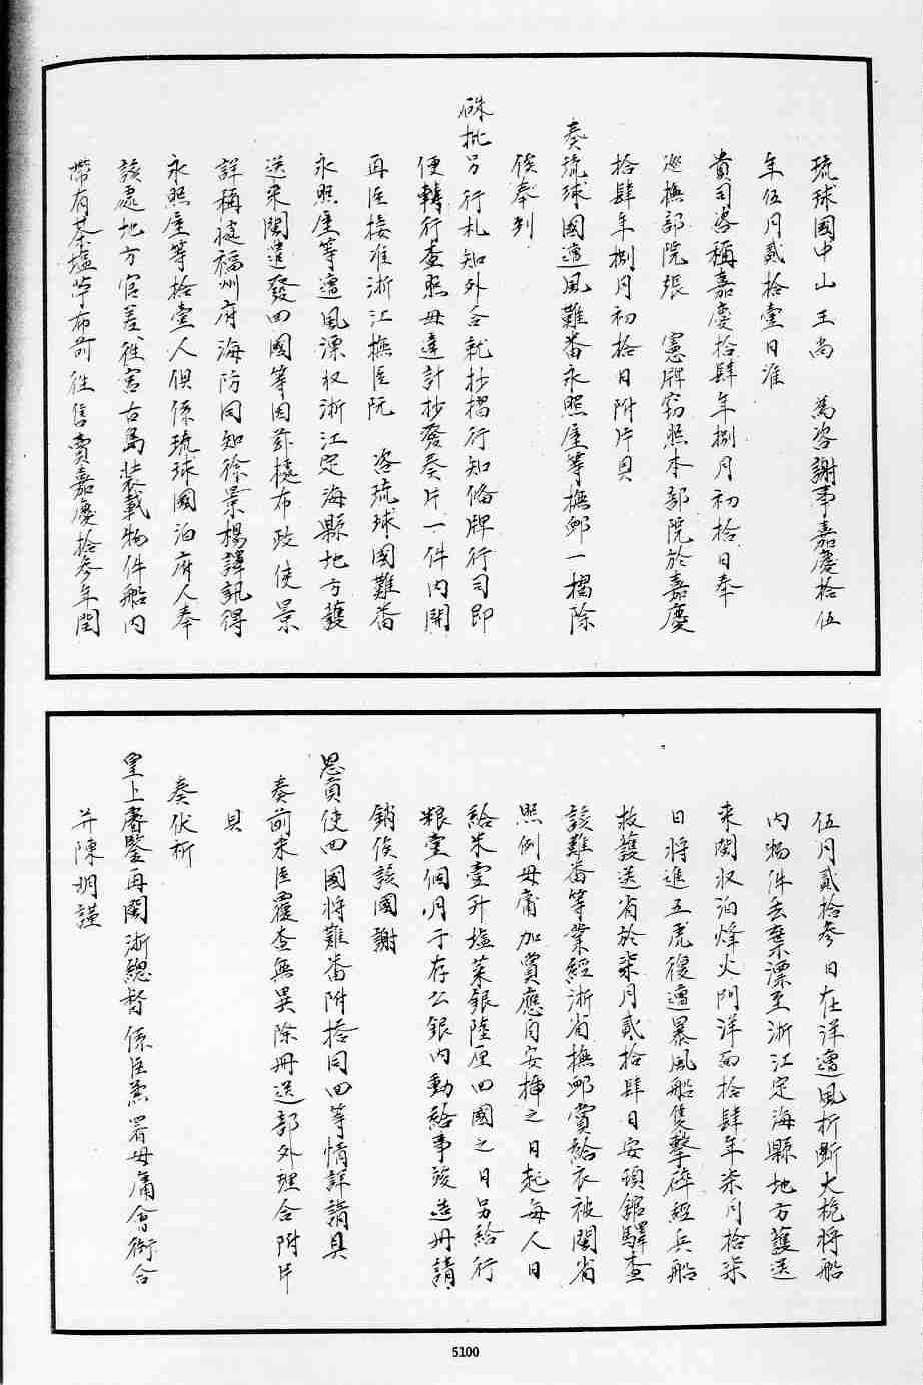 琉球國中山王尚　為咨謝事嘉慶拾伍
年伍月貳拾壹日准
貴司咨稱嘉慶拾肆年捌月初拾日奉
巡撫部院張　憲牌竊照本部院於嘉慶
拾肆年捌月初拾日附片具
奏琉球國遭風難番永照屋等撫卹一摺除
俟奉到
硃批另行札知外合就抄摺行知俻牌行司即
便轉行查照毋違計抄發奏片一件內開
再臣接准浙江撫臣阮　咨琉球國難番
永照屋等遭風漂収浙江定海縣地方護
送來閩遣發回國等因茲據布政使景
詳稱據福州府海防同知徐景楊譯訊得
永照屋等拾壹人俱係琉球國泊府人奉
該處地方官差徃宮古島裝載物件船內
帶有茶塩苧布前徃售賣嘉慶拾叁年閏
伍月貳拾叁日在洋遭風折斷大桅將船
內物件丢棄漂至浙江定海縣地方護送
來閩収泊烽火門洋面拾肆年柒月拾柒
日將進五虎復遭暴風船隻擊碎經兵船
救護送省於柒月貳拾肆日安頓館驛查
該難番等業經浙省撫卹賞給衣被閩省
照例毋庸加賞應自安揷之日起每人日
給米壹升塩菜銀陸厘回國之日另給行
粮壹個月于存公銀内動給事竣造册請
銷俟該國謝
恩貢使回國將難番附搭同回等情詳請具
奏前來臣覆查無異除冊送部外理合附片
具
奏伏祈
皇上睿鑒再閩浙總督係臣兼署毋庸會銜合
并陳明謹
5100